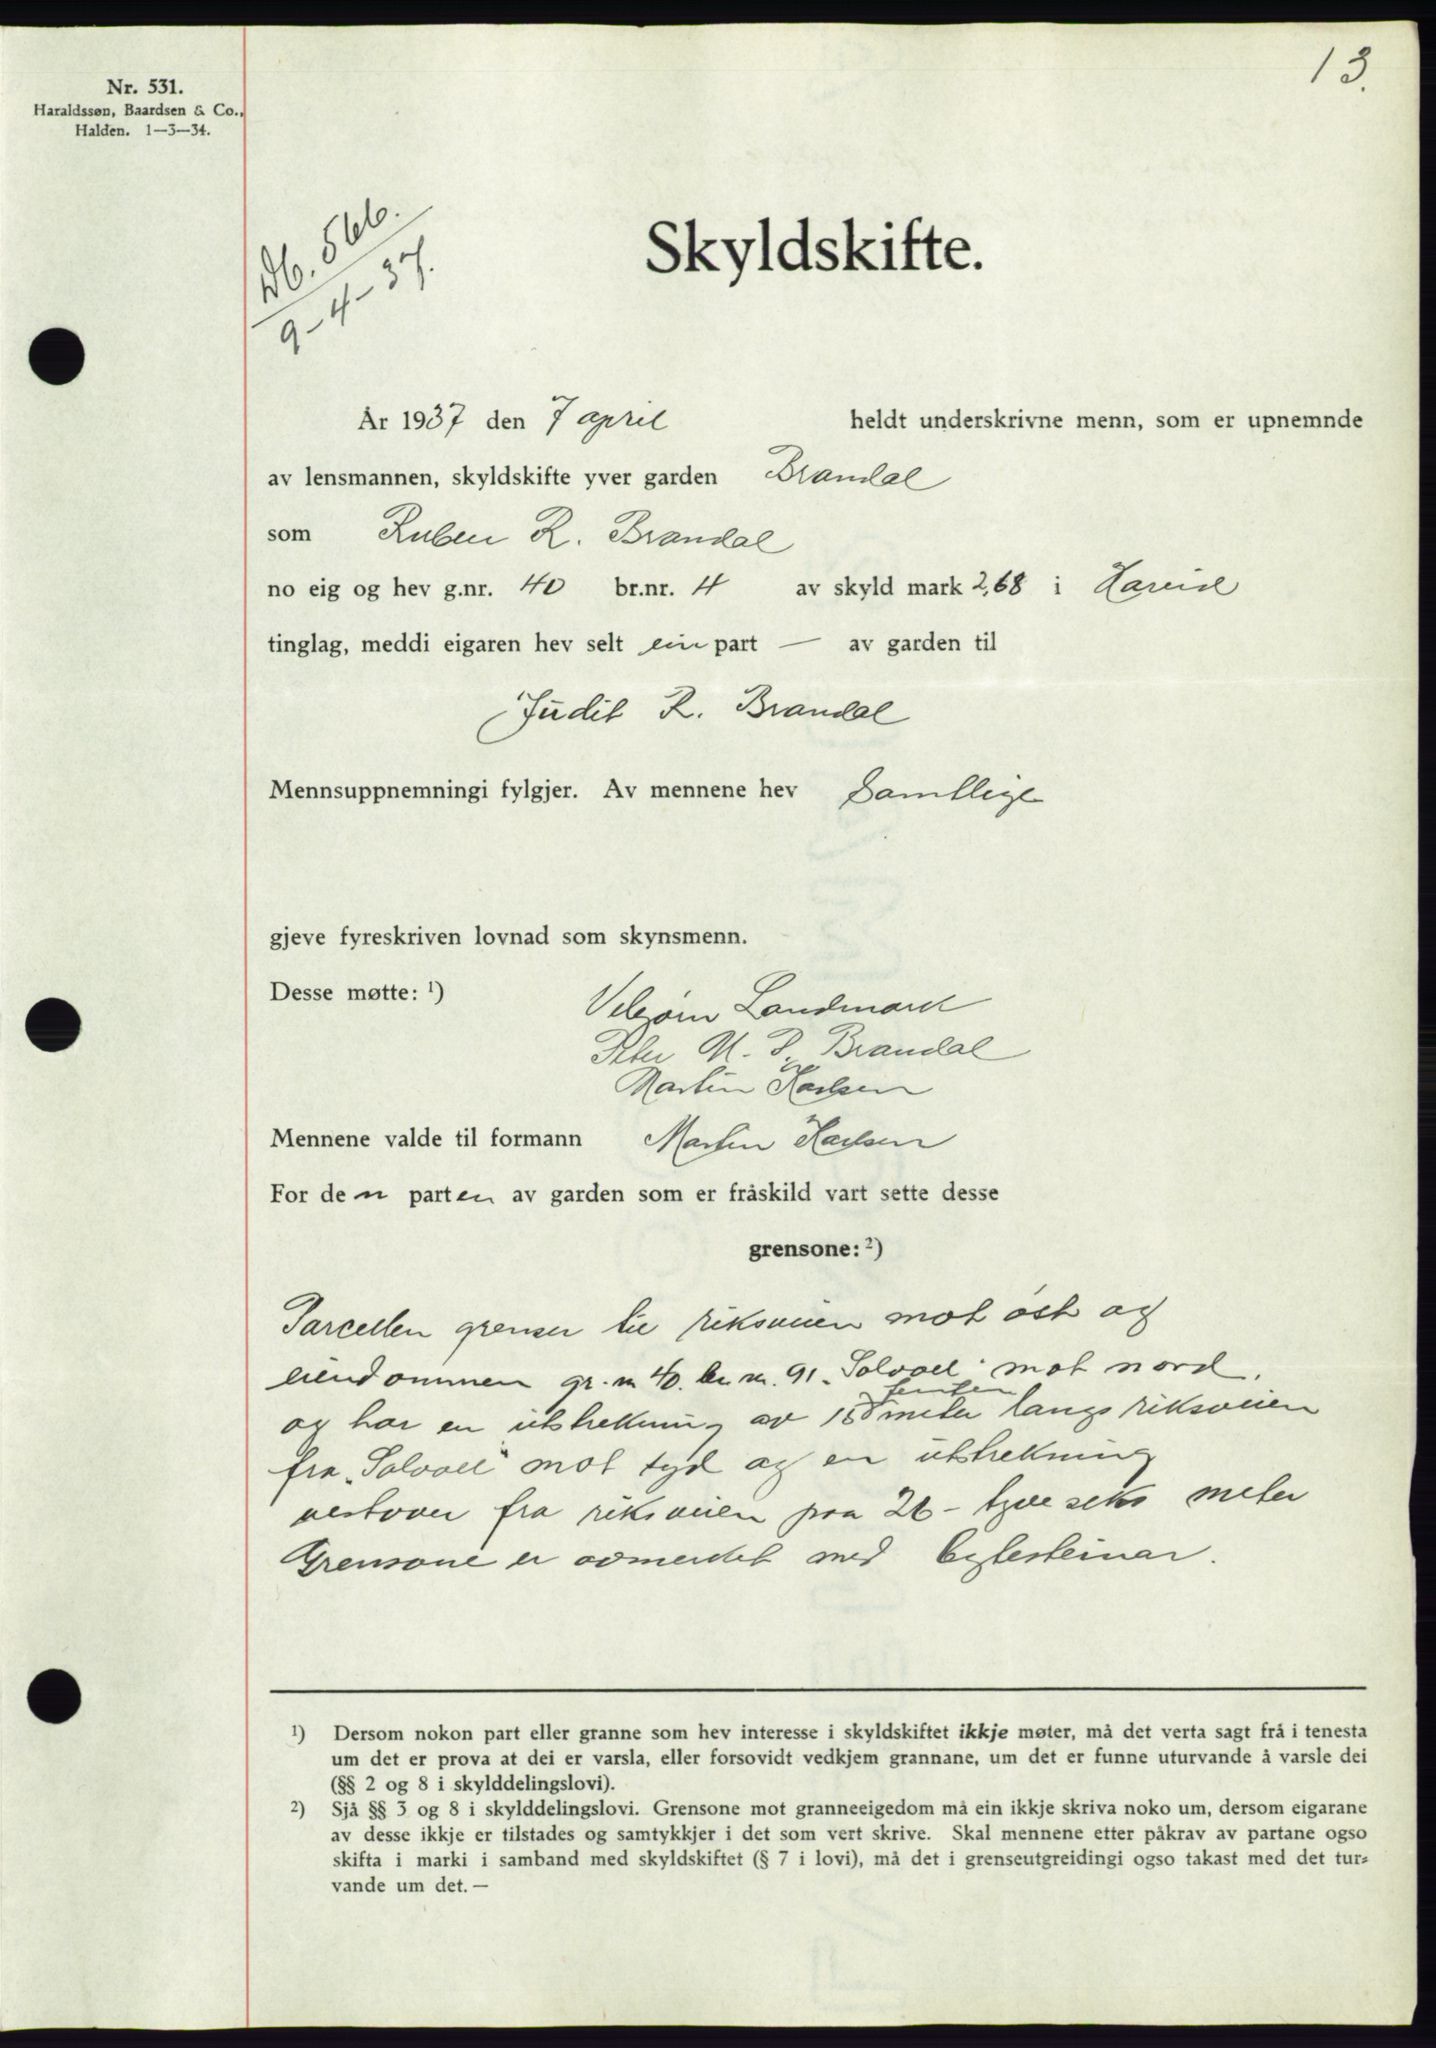 13.
Nr. 531.
Haraldssøn, Baardsen & Co.,
Halden. 1—3—34.
Db. 566.
9-4-37.
Skyldskifte.
År 1937 den 7 april heldt underskrivne menn, som er upnemnde
av lensmannen, skyldskifte yver garden Brandal
som Ruben R. Brandal
no eig og hev g.nr. 40 br.nr. 4 av skyld mark 2,68 i Hareid
tinglag, meddi eigaren hev selt ein part — av garden til
Judit R. Brandal
Mennsuppnemningi fylgjer. Av mennene hev Samtlige
gjeve fyreskriven lovnad som skynsmenn.
Desse møtte: ¹)
Landmark
Peter M. P. Brandal
Martin Karlsen
Mennene valde til formann Martin Karlsen
For den parten av garden som er fråskild vart sette desse
grensone: ²)
Parcellen grenser til riksveien mot øst og
eiendommen gr. n 40. br. n. 91. "Solvoll" mot nord.
femten
og har en utstrekning av 15 meter langs riksveien
fra "Solvoll" mot syd og en utstrekning
vestover fra riksveien paa 26 - tyve seks meter
Grensone er avmerket med bytesteinar.
¹) Dersom nokon part eller granne som hev interesse i skyldskiftet ikkje møter, må det verta sagt frå i tenesta
um det er prova at dei er varsla, eller forsovidt vedkjem grannane, um det er funne uturvande å varsle dei
(§§ 2 og 8 i skylddelingslovi).
²) Sjå §§ 3 og 8 i skylddelingslovi. Grensone mot granneeigedom må ein ikkje skriva noko um, dersom eigarane
av desse ikkje er tilstades og samtykkjer i det som vert skrive. Skal mennene etter påkrav av partane ogso
skifta i marki i samband med skyldskiftet (§ 7 i lovi), må det i grenseutgreidingi ogso takast med det tur-
vande um det. —